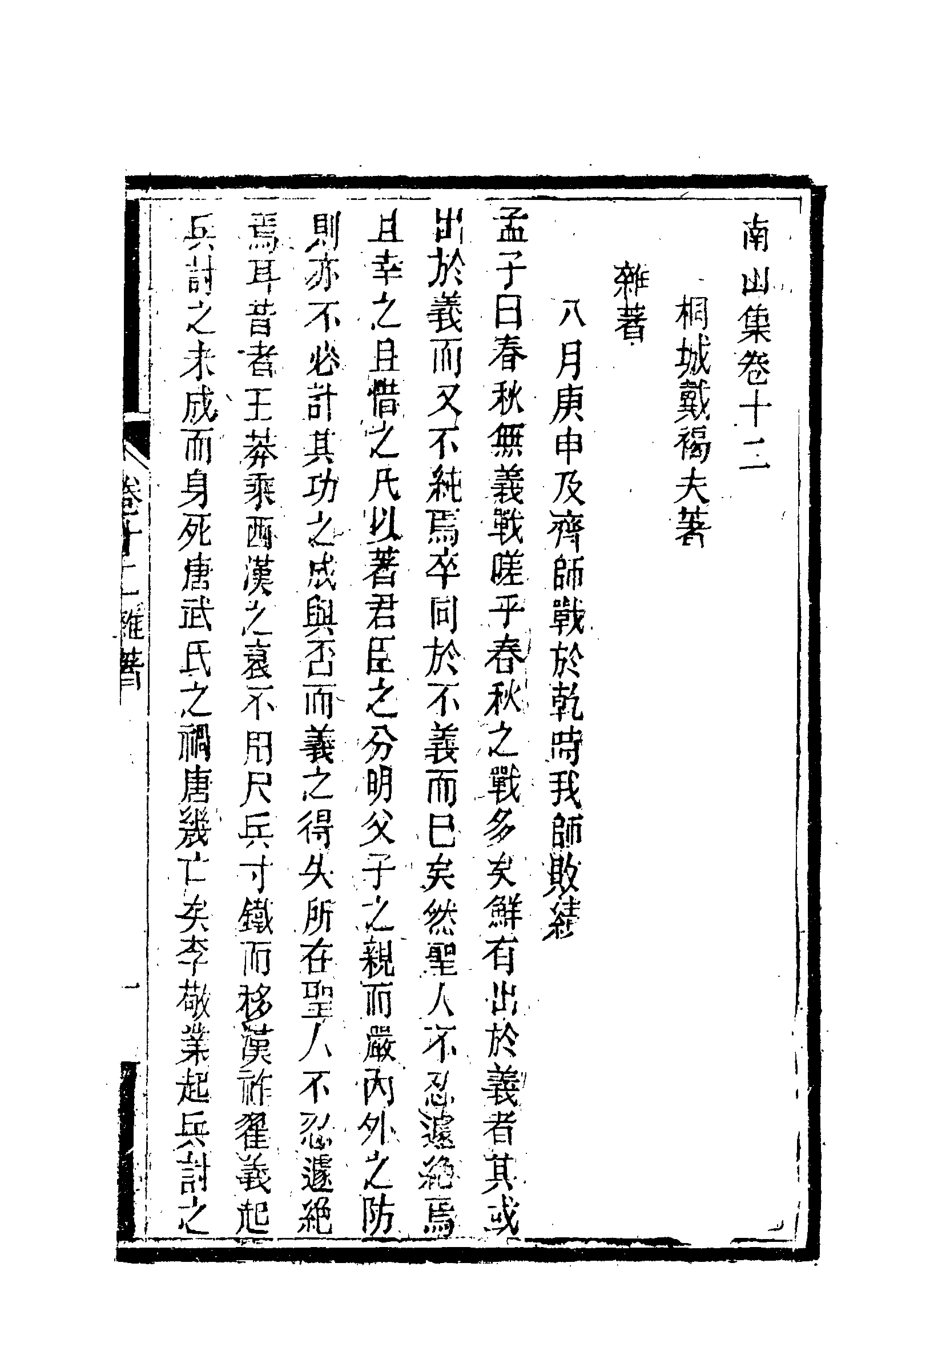 南山集卷十二
桐城戴褐夫著
雜著
八月庚申及齊師戰於乾時我師敗績
孟子曰春秋無義戰嗟乎春秋之戰多矣鮮有出於義者其或
出於義而又不純焉卒同於不義而已矣然聖人不忍遽絶焉
且幸之且惜之凡以著君臣之分明父子之親而嚴內外之防
則亦不必計其功之成與否而義之得失所在聖人不忍遽絶
焉耳昔者王莽乘西漢之衰不用尺兵寸鐵而移漢祚翟義起
兵討之未成而身死唐武氏之禍唐幾亡矣李敬業起兵討之
卷十二雜著
一